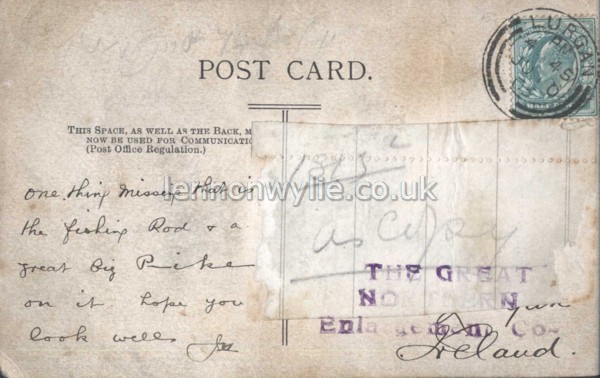 POST CARD.
LURGAN
HALFPENNY
THIS SPACE, AS WELL AS THE BACK, M
NOW BE USED FOR COMMUNICATIO
(Post Office Regulation.)
lennonwylie.co.uk
one thing missing that is
the fishing Rod & a
great big Picke
on it. hope you
look wells
as copy
THE GREAT
NORTHERN
Enlargement Co
Ireland.